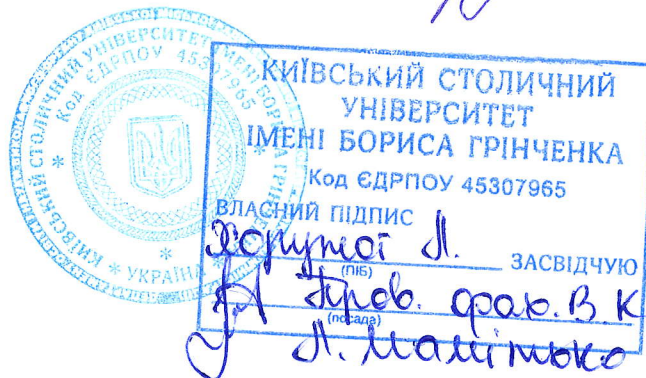 КИЇВСЬКИЙ СТОЛИЧНИЙ УНІВЕРСИТЕТ ІМЕНІ БОРИСА ГРІНЧЕНКА
* УКРАЇНА *
Код ЄДРПОУ 45307965
КИЇВСЬКИЙ СТОЛИЧНИЙ
УНІВЕРСИТЕТ
ІМЕНІ БОРИСА ГРІНЧЕНКА
Код ЄДРПОУ 45307965
ВЛАСНИЙ ПІДПИС
Хоружої Л. ЗАСВІДЧУЮ
(ПІБ)
Пров. фах. В.К
(посада)
Л.